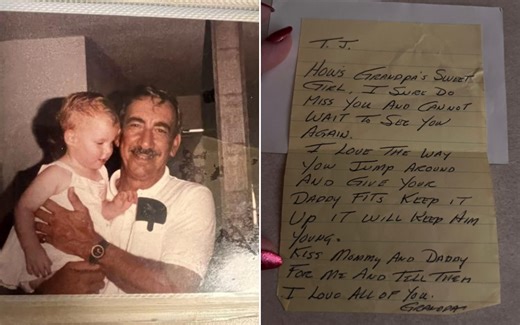 T. J.
HOWS GRANDPA'S SWEET
GIRL. I SURE DO
MISS YOU AND CANNOT
WAIT TO SEE YOU
AGAIN.
I LOVE THE WAY
YOU JUMP AROUND
AND GIVE YOUR
DADDY FITS KEEP IT
UP IT WILL KEEP HIM
YOUNG.
KISS MOMMY AND DADDY
FOR ME AND TELL THEM
I LOVE ALL OF YOU.
GRANDPA